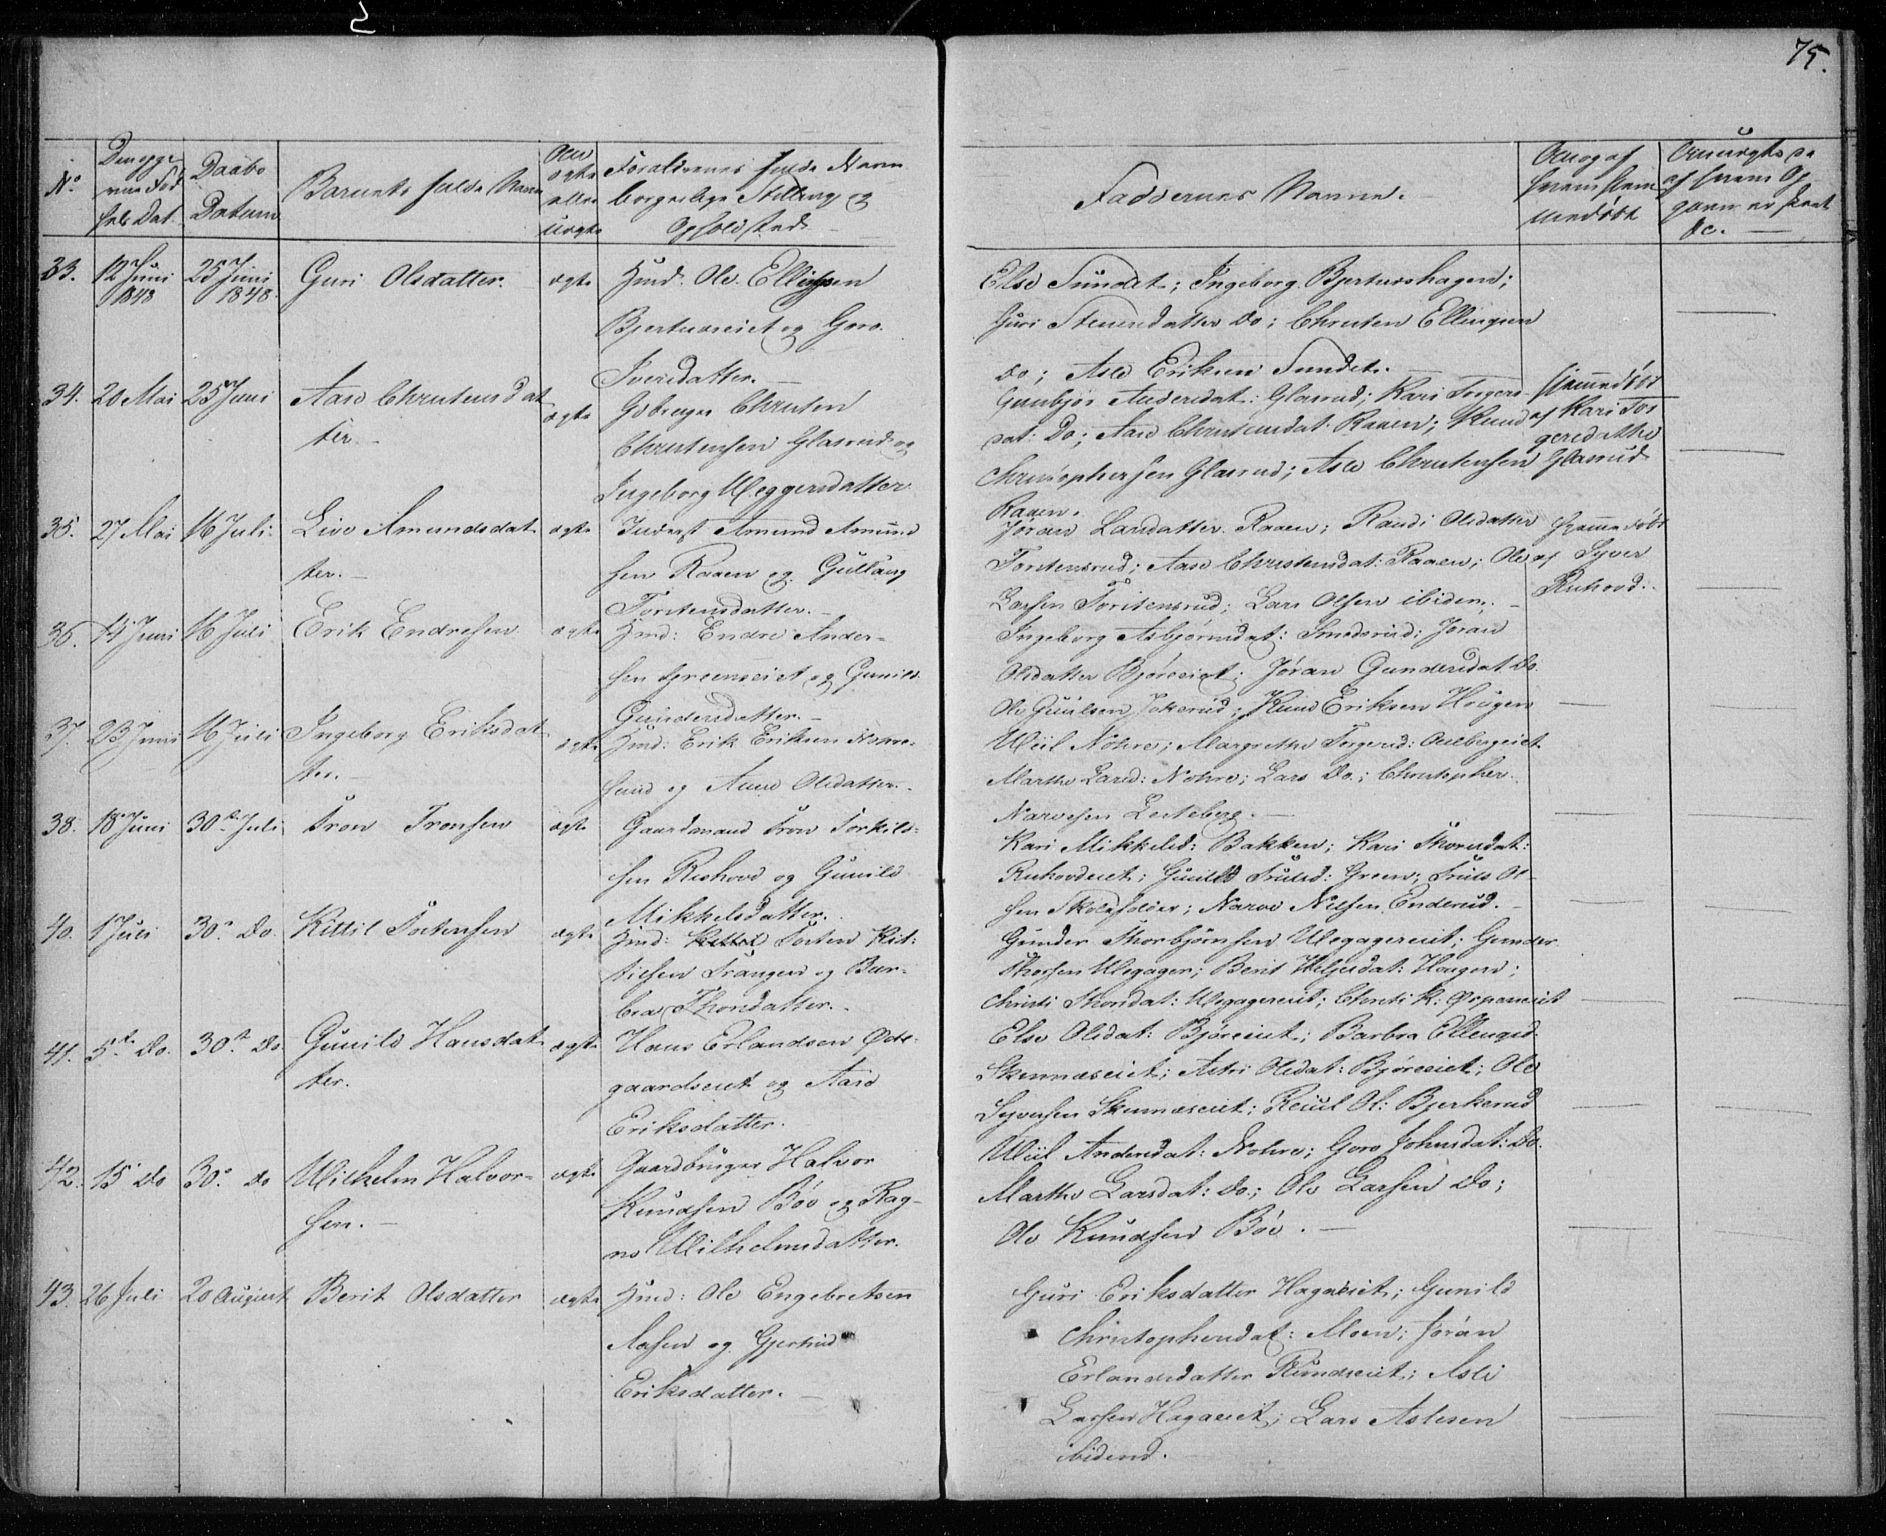 75.
No
Den opgi
vne Fød
sels Dat.
Daabs
Datum
Barnets fulde Navn
Om
ægte
eller
uægte
Forældrenes fulde Navn
borgerlige Stilling og
Opholdsted
Faddernes Navne.
Om og af
hvem hjem
medøbt
33. 12 Juni 1848 25 Juni 1848 Guri Olsdatter. ægte Hmd. Ole Ellingsen
Bjertnæseiet og Goro
Iversdatter.
Else Sundet; Ingeborg Bjertnæshagen;
Guri Steensdatter do; Christen Ellingsen
do; Asle Eriksen Sundet.
34. 20 Mai 25 Juni Aase Christensdat
ter. ægte Gbruger Christen
Christensen Glasrud og
Ingeborg Meggersdatter
Gunbjør Andersdat: Glasrud; Kari Torgers
dat: Do; Aase Christensdat: Raaen; Knud
Christophersen Glasrud; Asle Christensen
Raaen.
hjemmedøbt
af Kari Tor
gersdatter
Glasrud
35. 27 Mai 16 Juli Live Amundsdat
ter. ægte Inderst Amund Amund
sen Raaen og Gullaug
Torstensdatter.
Jøran Larsdatter Raaen; Randi Olsdatter
Torstensrud; Aase Christensdat: Raaen; Ole
Larsen Torstensrud; Lars Olsen ibidem.
hjemmedøbt
af Syver
Ruhovd.
36. 14 Juni 16 Juli Erik Endresen ægte Hmd: Endre Ander-
sen Greeneiet og Gunild
Gundersdatter.
Ingeborg Asbjørnsdat: Smedsrud; Jøran
Olsdatter Bjøreeiet; Jøran Gundersdat. Do.
Ole Gulsen Jokerud; Knud Eriksen Hougen
37. 23 Juni 16 Juli Ingeborg Eriksdat
ter. ægte Hmd: Erik Eriksen
og Anne Olsdatter.
Mül Nohre; Margrethe Torgersd: Aalbergeiet
Marthe Larsd: Nohre; Lars Do.; Christopher
Narvesen Lesteberg.
38. 18 Juni 30te Juli Tron Tronsen ægte Gaardmand Tron Torkild-
sen Ruhovd og Gunild
Mikkelsdatter.
Kari Mikkelsd: Bakken; Kari Thorsdat:
Ruhovdeiet; Gunild Trulsd: Green; Truls Ol-
sen Skoleholder; Narve Nilsen Enderud.
40. 1 Juli 30. do. Kittil Torstensen ægte Hmd: Torsten Kit-
tilsen Trangen og Bar-
bra Thorsdatter.
Gunder Thorbjørnsen Ulegagereiet; Gunder
Thorsen Ulegager; Berit Helgesdat: Haugen;
Christi Thorsdat: Ulegagereiet; Christi K:
41. 5te do. 30te do Gunild Hansdat
ter. ægte Hans Erlandsen Øde-
gaardseiet og Aase
Eriksdatter.
Else Olsdat: Bjøreeiet; Barbra Ellingsd.
Skinnæseiet; Astri Olsdat: Bjøreeiet; Ole
Syversen Skinnæseiet; Reiul Ol: Bjerkerud
42. 15 do 30. do Wilhelm Halvor-
sen. ægte Gaardbruger Halvor
Knudsen Böe og Rag-
ne Wilhelmsdatter.
Mül Andersdat: Nohre; Goro Johnsdat: Do.
Marthe Larsdat: Do; Ole Larsen Do;
Ole Knudsen Böe.
43. 26 Juli 20 August Berit Olsdatter ægte Hmd: Ole Engebretsen
Aasen og Gjertrud
Eriksdatter.
Guri Eriksdatter Hagaeiet; Gunild
Christophersdat: Moen; Jøran
Erlandsdatter Rundseiet; Asle
Larsen Hagaeiet; Lars Aslesen
ibidend.